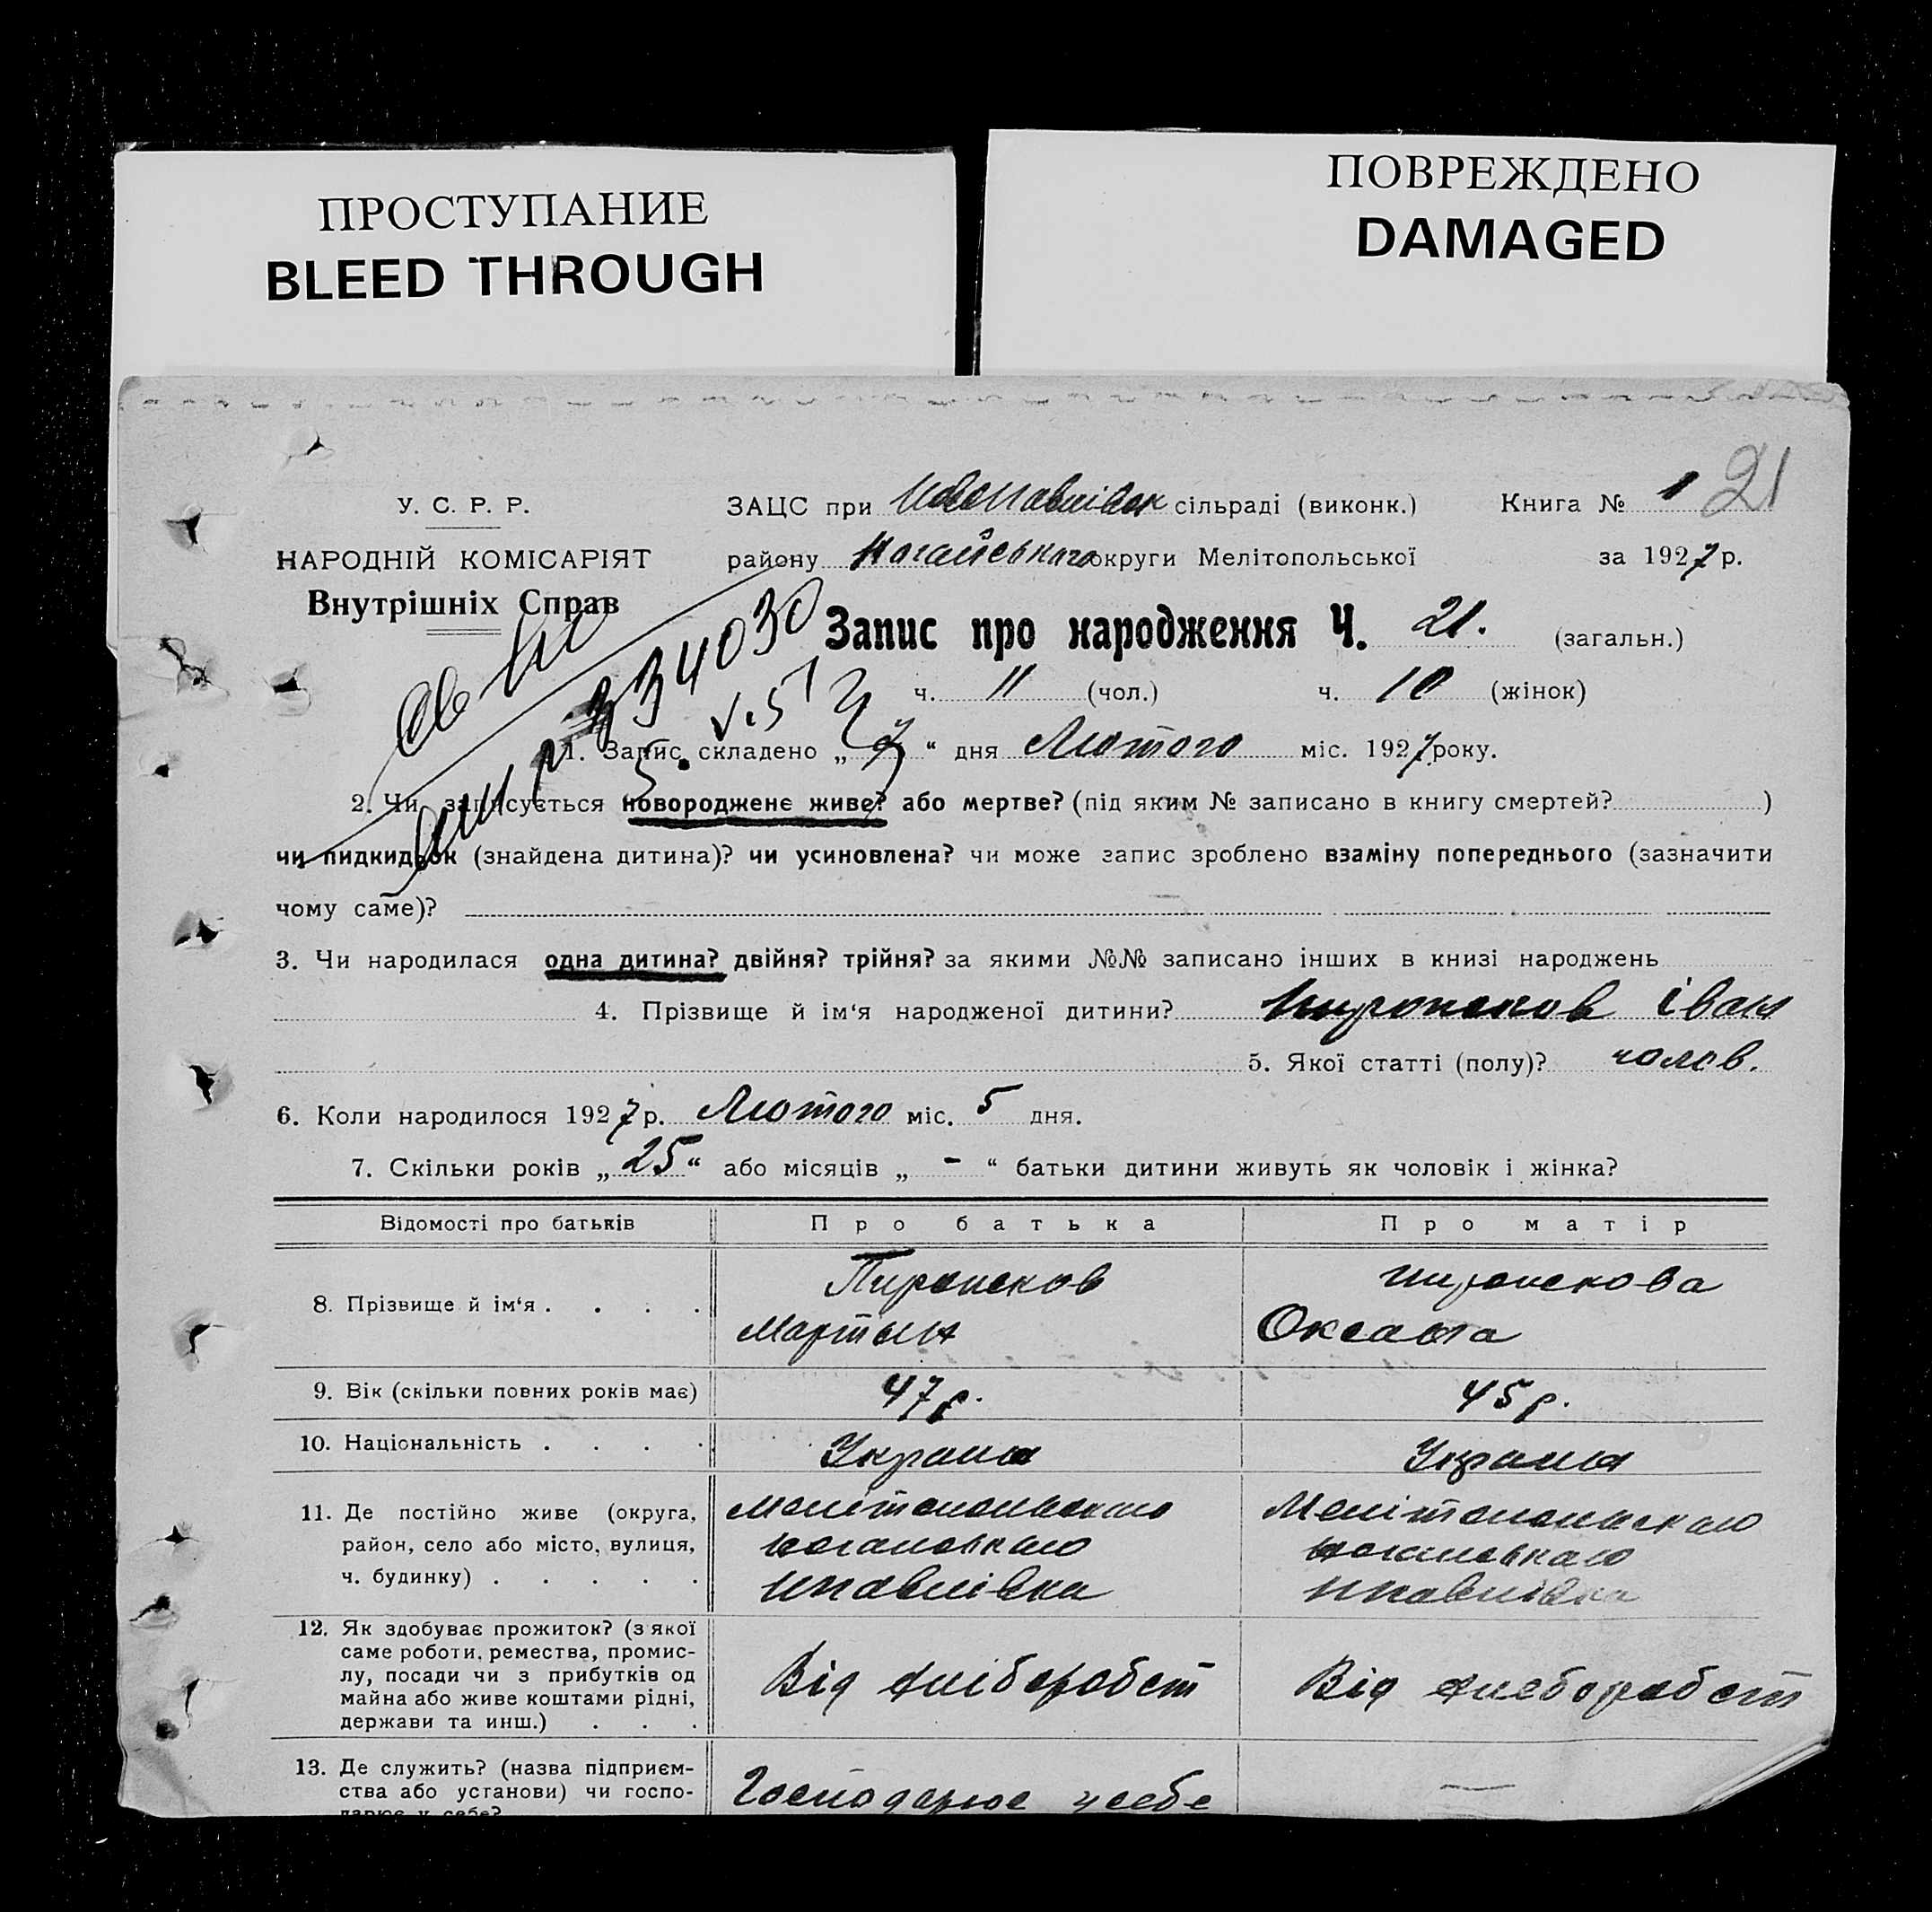 ПРОСТУПАНИЕ
BLEED THROUGH
ПОВРЕЖДЕНО
DAMAGED
У. С. Р. Р.
НАРОДНІЙ КОМІСАРІЯТ
Внутрішніх Справ
ЗАЦС при Новопавлівск сільраді (виконк.) Книга № 1 21
району Ногайського округи Мелітопольської за 1927 р.
Запис про народження Ч. 21. (загальн.)
ч. 11 (чол.) ч. 10 (жінок)
1. Запис складено „7“ дня Лютого міс. 1927 року.
2. Чи записується новороджене живе? або мертве? (під яким № записано в книгу смертей? )
чи пидкидьок (знайдена дитина)? чи усиновлена? чи може запис зроблено взаміну попереднього (зазначити
чому саме)?
3. Чи народилася одна дитина? двійня? трійня? за якими №№ записано інших в книзі народжень
4. Прізвище й ім‘я народженої дитини? Іван
5. Якої статті (полу)? чолов.
6. Коли народилося 1927 р. Лютого міс. 5 дня.
7. Скільки років „25“ або місяців „-“ батьки дитини живуть як чоловік і жінка?
Відомості про батьків
Про батька
Про матір
8. Прізвище й ім‘я
Пиронсков
Мартын
Пиронскова
Оксана
9. Вік (скільки повних років має)
47 р.
45 р.
10. Національність
Україн
Україн
11. Де постійно живе (округа,
район, село або місто, вулиця,
ч. будинку)
Мелітопольського
Ногайського
Нпавлівка
Мелітопольського
Ногайського
Нпавлівка
12. Як здобуває прожиток? (з якої
саме роботи, ремества, промис-
лу, посади чи з прибутків од
майна або живе коштами рідні,
держави та инш.)
Від хліборобст
Від хлеборобст
13. Де служить? (назва підприєм-
ства або установи) чи госпо-
дарює у себе?
Господарює у себе